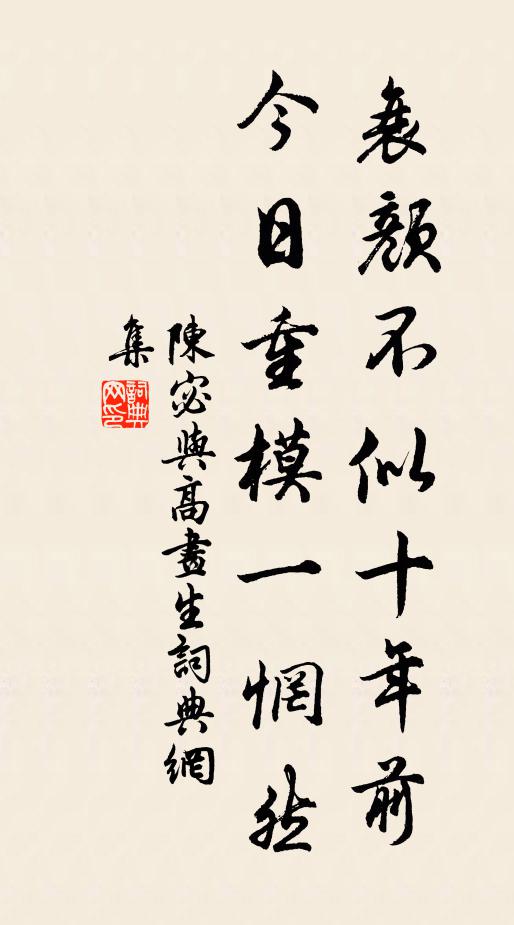 衰顔不似十年前
今日重模一惘然
陳宓與高畫生詞典網
集
詞典
网印